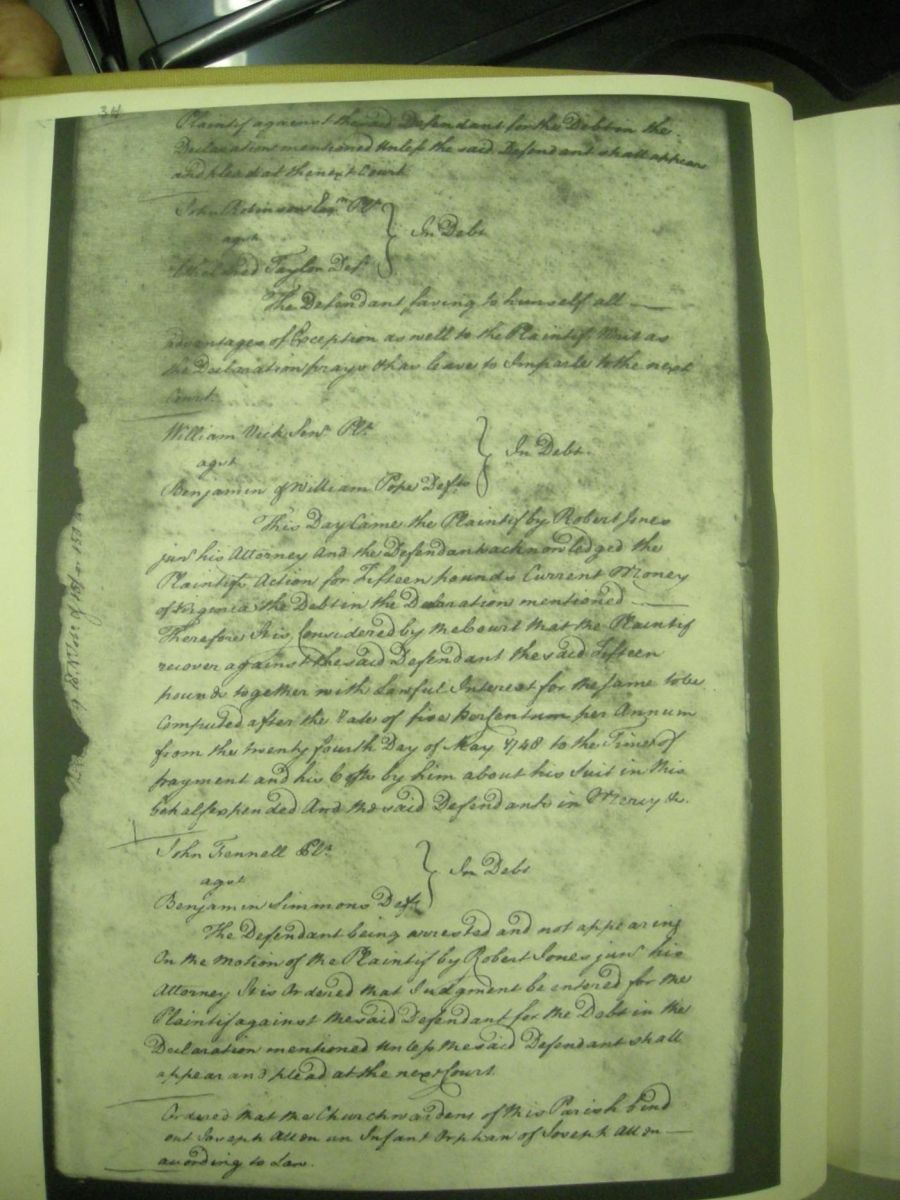 34
Plaintif against the said Defendant for the Debt in the
Declaration mentioned Unless the said Defendant shall appear
and plead at the next Court
John Robinson Esqr. Plt.
agst
Taylor Deft.
In Debt
The Defendant saving to himself all
advantages of Exception as well to the Plaintifs Writ as
the Declaration prays & has leave to Imparle to the next
Court.
William Vick Senr. Plt.
agst
Benjamin & William Pope Defts.
In Debt.
This Day Came the Plaintif by Robert Jones
junr. his Attorney And the Defendants acknowledged the
Plaintifs Action for Fifteen pounds Current Money
of Virginia the Debt in the Declaration mentioned
Therefore It is Considered by the Court that the Plaintif
recover against the said Defendant the said Fifteen
pounds together with Lawful Interest for the same to be
Computed after the Rate of five per Centum per Annum
from the twenty fourth Day of May 1748 to the Time of
payment and his Costs by him about his Suit in this
behalf expended And the said Defendants in Mercy &c.
John Fennell Plt.
agst
Benjamin Simmons Deft.
In Debt
The Defendant being arrested and not appearing
On the Motion of the Plaintif by Robert Jones junr. his
Attorney It is Ordered that Judgment be entered for the
Plaintif against the said Defendant for the Debt in the
Declaration mentioned Unless the said Defendant shall
appear and plead at the next Court.
Ordered that the Churchwardens of this Parish bind
out Joseph Allen an Infant Orphan of Joseph Allen
according to Law.